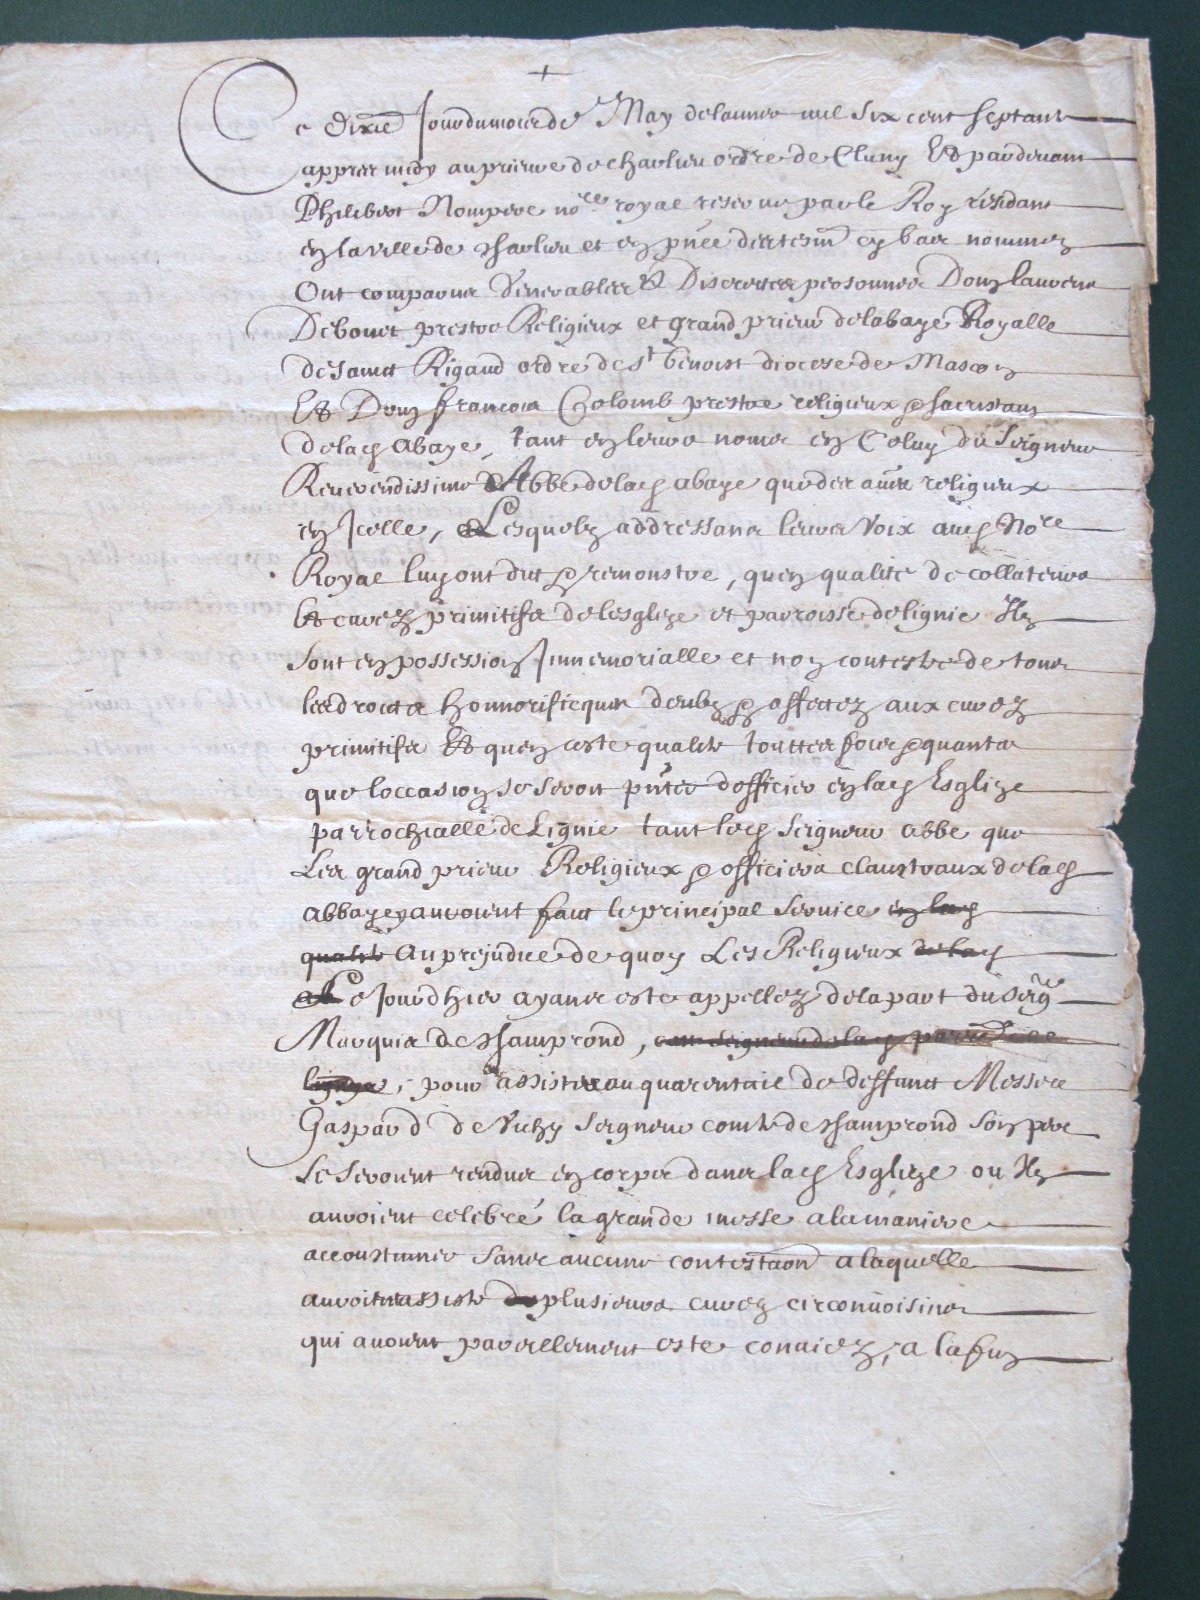 +
Ce dixie Jour du mois de May de lannee mil six cent septante
appres midy au prieure de charlieu ordre de Cluny Et pardevant
Philibert Nompere nore royal reserve par le Roy residant
en la ville de charlieu et en pnce des tesm cy bas nommez
Ont comparus Venerables Et Discrettes personnes Dom
Debouet prestre Religieux et grand prieur de labaye Royalle
de Sainct Rigaud ordre de st benoist diocese de Mascon
Et Dom francois Cholomb prestre religieux & sacristain
de lad abaye, tant en leurs noms en Celuy du Seigneur
Reverendissime Abbe de lad abaye que des aues religieux
en Icelle, Lesquelz addressans leurs voix aud Nore
Royal luy ont dit & remonstre, quen qualite de collateurs
Et curez primitifs de lesglize et parroisse de lignie Ilz
sont en possession Immemorialle et non contestee de tous
les droits honnorifiques deubz & affectez aux curez
primitifs Et quen ceste qualite touttes fois & quantes
que loccasion se seroit pntee dofficier en lad Esglize
parrochialle de Lignie tant led Seigneur abbe que
Les grand prieur Religieux & officiers claustraux de lad
abbaye y auroient faict le principal service en lad
qualite au prejudice de quoy Les Religieux de lad
ab Ce Jourdhier ayans este appellez de la part du seigr
Marquis de champrond, com Seigneur de lad parr de
lignye, pour assister au quarentail de deffunct Messire
Gaspard de Vichy seigneur comte de champrond son pere
se seroient rendus en corps dans lad Esglize ou Ilz
auroient celebré la grande messe a la maniere
accoustumee sans aucune contestaon a laquelle
auroient assiste de plusieurs curez circonvoisins
qui avoient pareillement este conviez, a la fin